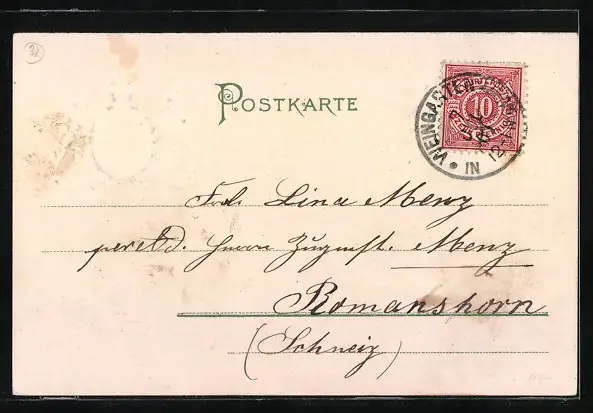 32
POSTKARTE
WEINGARTEN
IN
10
Frl. Lina Menz
per Ad. Herrn Zugmstr. Menz
Romanshorn
(Schweiz)